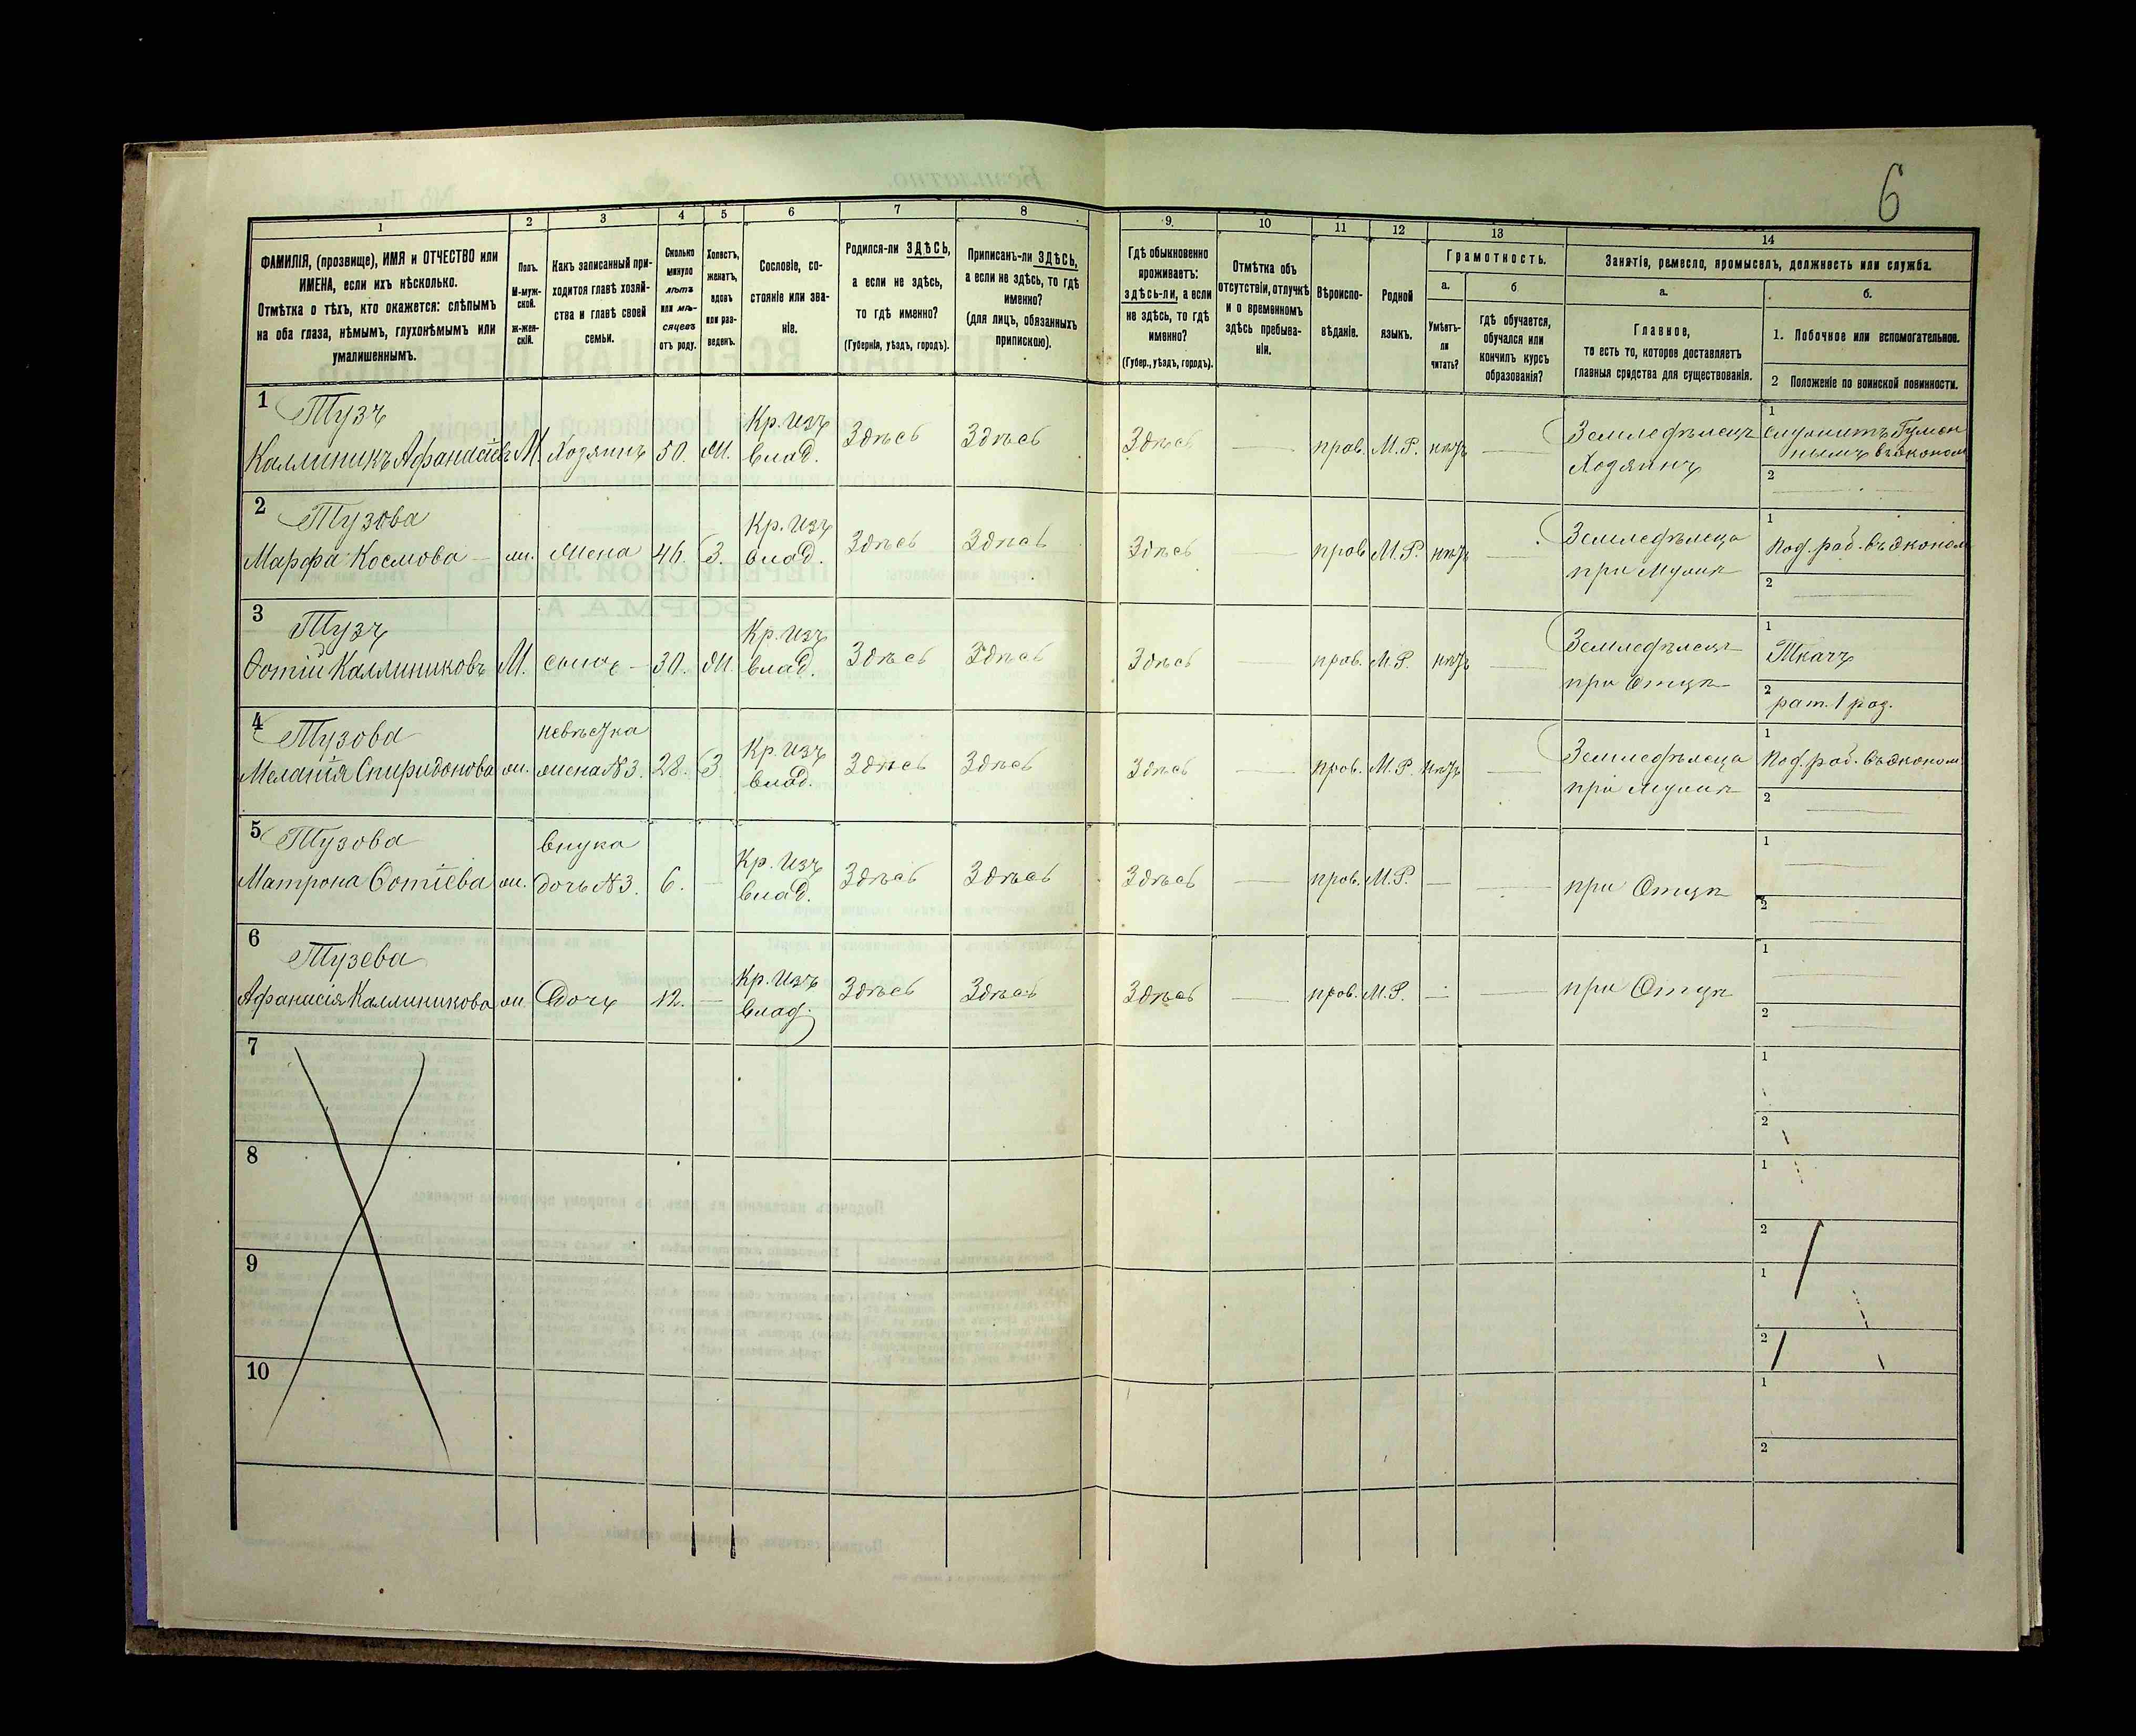 6
1 2 3 4 5 6 7 8 9. 10 11 12 13 14
ФАМИЛІЯ, (прозвище), ИМЯ и ОТЧЕСТВО или
ИМЕНА, если ихъ нѣсколько.
Отмѣтка о тѣхъ, кто окажется: слѣпымъ
на оба глаза, нѣмымъ, глухонѣмымъ или
умалишеннымъ.
Полъ.
М-муж-
ской.
ж-жен-
скій.
Какъ записанный при-
ходится главѣ хозяй-
ства и главѣ своей
семьи.
Сколько
минуло
лѣтъ
или мѣ-
сяцевъ
отъ роду.
Холостъ,
женатъ,
вдовъ
или раз-
веденъ.
Сословіе, со-
стояніе или зва-
ніе.
Родился-ли ЗДѢСЬ,
а если не здѣсь,
то гдѣ именно?
(Губернія, уѣздъ, городъ).
Приписанъ-ли ЗДѢСЬ,
а если не здѣсь, то гдѣ
именно?
(для лицъ, обязанныхъ
припискою).
Гдѣ обыкновенно
проживаетъ:
здѣсь-ли, а если
не здѣсь, то гдѣ
именно?
(Губер., уѣздъ, городъ).
Отмѣтка объ
отсутствіи, отлучкѣ
и о временномъ
здѣсь пребыва-
ніи.
Вѣроиспо-
вѣданіе.
Родной
языкъ.
Грамотность.
а.
Умѣетъ-
ли
читать?
б
гдѣ обучается,
обучался или
кончилъ курсъ
образованія?
Занятія, ремесло, промыселъ, должность или служба.
а.
Главное,
то есть то, которое доставляетъ
главныя средства для существованія.
б.
1. Побочное или вспомогательное.
2 Положеніе по воинской повинности.
1 Тузъ
Каллиникъ Афанасіевъ М. Хозяинъ 50. Ж. Кр. изъ
влад. Здѣсь Здѣсь Здѣсь — прав. М.Р. нѣтъ — Земледѣлецъ
Хозяинъ
1 Служитъ Гумен
нымъ въ эконом
2 —
2 Тузова
Марфа Космова — ж. Жена 46. З. Кр. изъ
влад. Здѣсь Здѣсь Здѣсь — прав М.Р. нѣтъ — Земледѣлица
при мужѣ
1 Под. раб. въ эконом
2 —
3 Тузъ
Фотій Каллиниковъ М. сынъ — 30. Ж. Кр. изъ
влад. Здѣсь Здѣсь Здѣсь — прав. М.Р. нѣтъ — Земледѣлецъ
при Отцѣ
1 Ткачъ
2 рат. 1 раз.
4 Тузова
Меланія Спиридонова ж. невѣстка
жена №3. 28. З. Кр. изъ
влад. Здѣсь Здѣсь Здѣсь — прав. М.Р. нѣтъ — Земледѣлица
при мужѣ
1 Под. раб. въ эконом
2 —
5 Тузова
Матрона Фотіева ж. внука
дочь №3. 6. — Кр. изъ
влад. Здѣсь Здѣсь Здѣсь — прав. М.Р. — — при Отцѣ
1 —
2 —
6 Тузева
Афанасія Каллиникова ж Дочь 12. — Кр. изъ
влад. Здѣсь Здѣсь Здѣсь — прав. М.Р. — — при Отцѣ
1 —
2 —
7
1
2
8
1
2
9
1
2
10
1
2